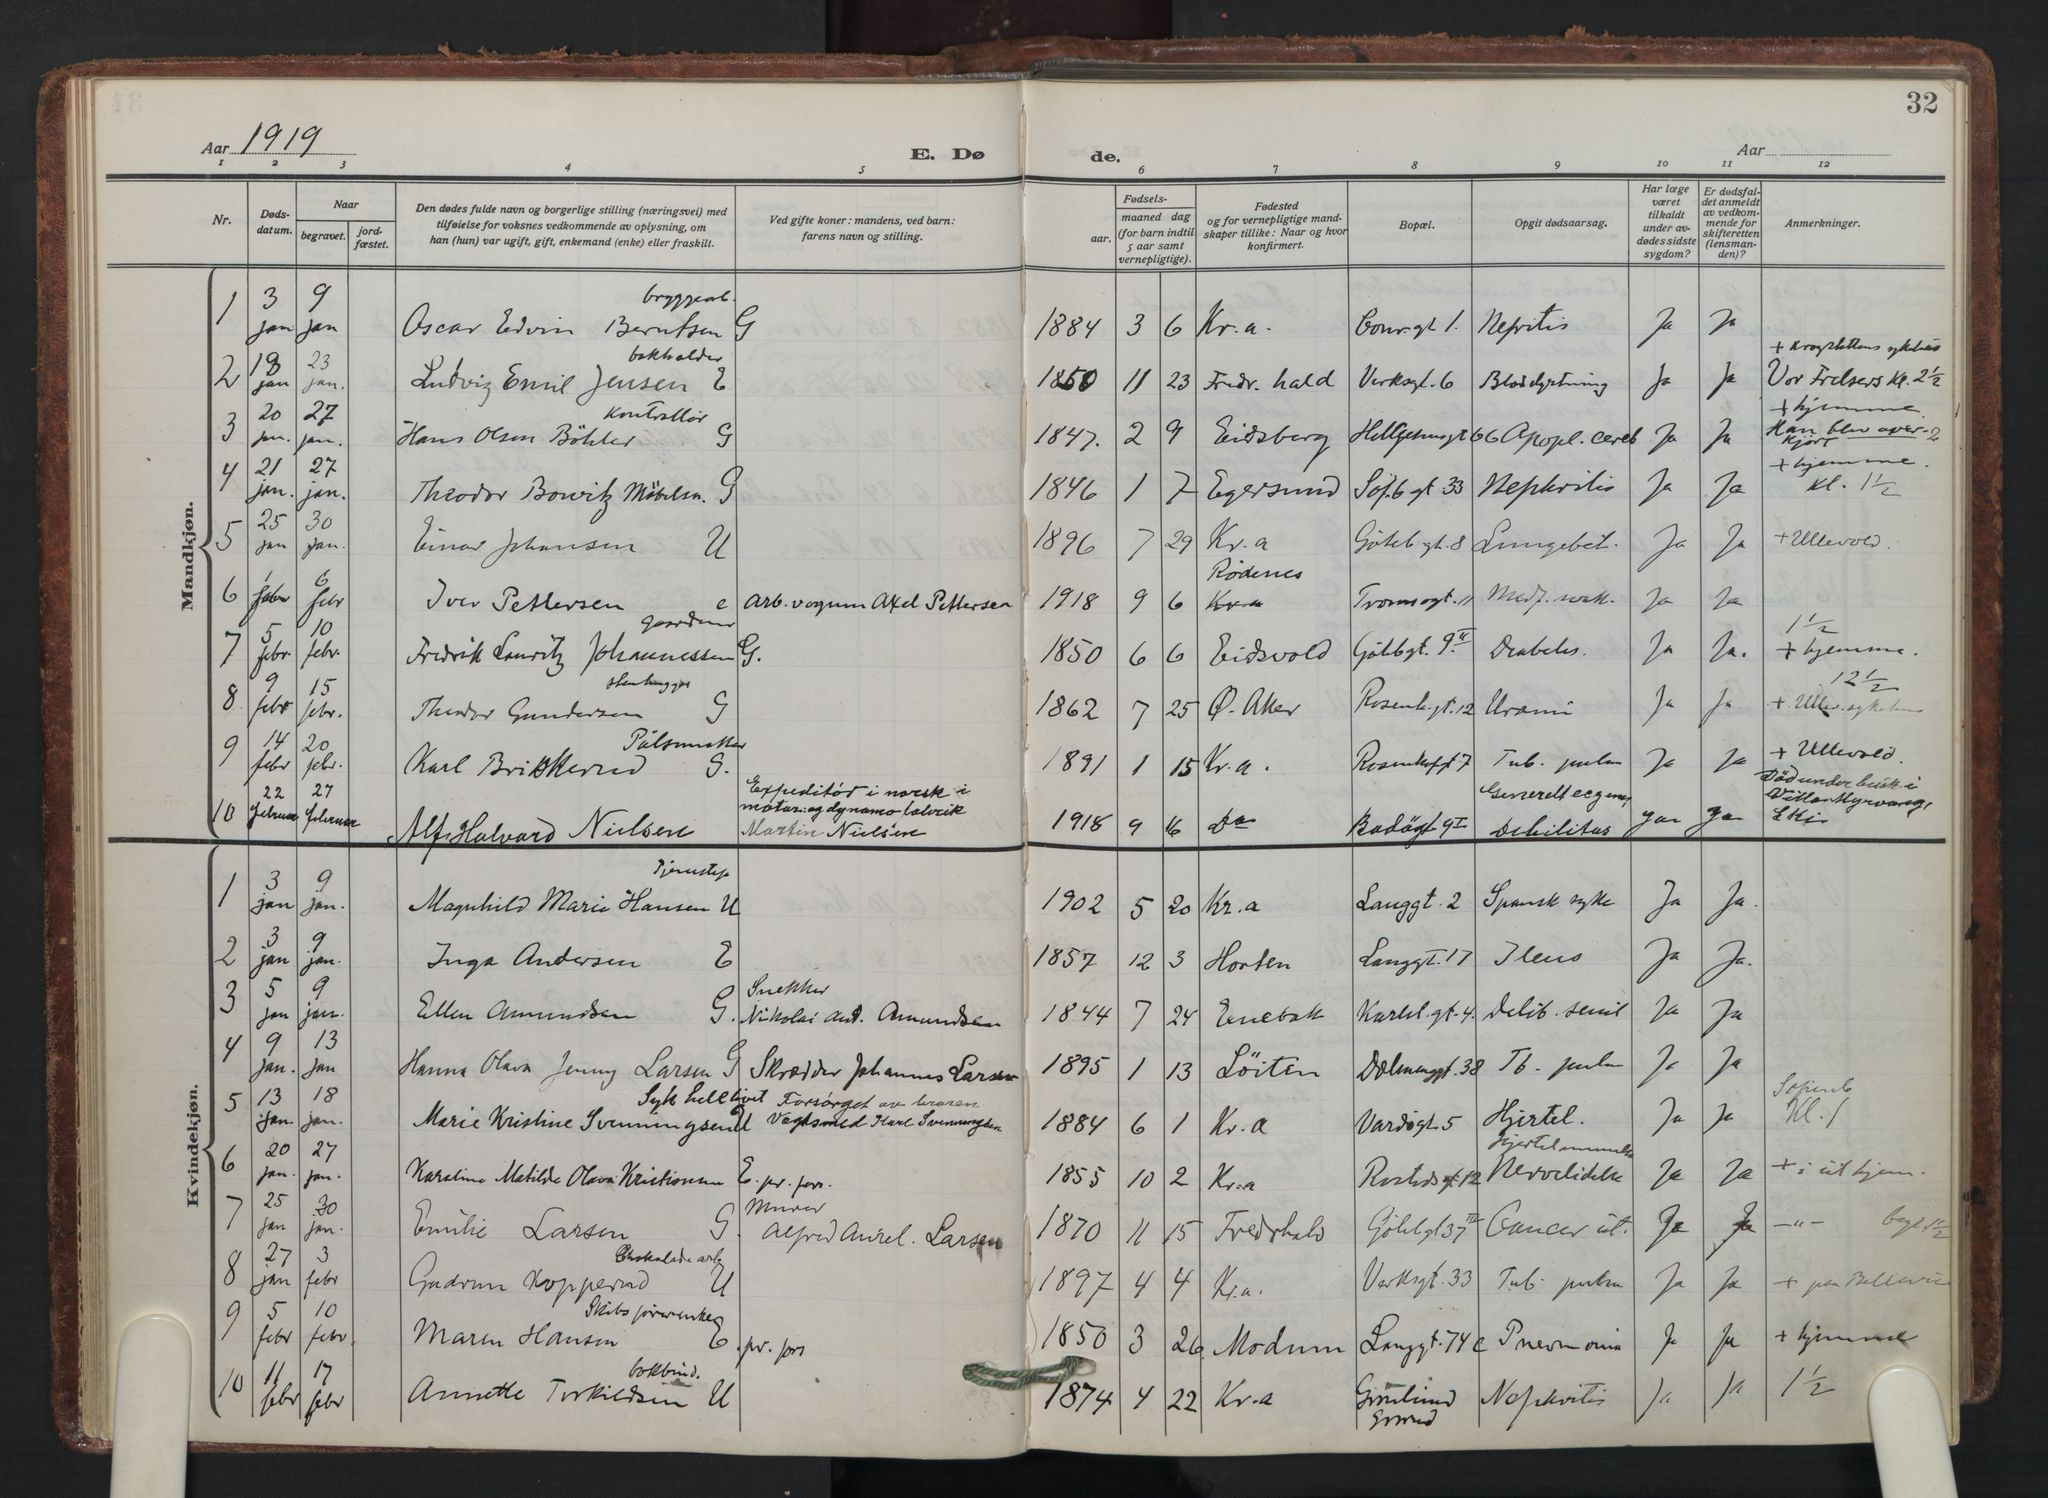 32
Aar 1919
E. Dø
de.
Aar
1 2 3 4 5 6 7 8 9 10 11 12
Nr.
Døds-
datum.
Naar
begravet.
jord-
fæstet.
Den dødes fulde navn og borgerlige stilling (næringsvei) med
tilføielse for voksnes vedkommende av oplysning, om
han (hun) var ugift, gift, enkemand (enke) eller fraskilt.
Ved gifte koner: mandens, ved barn:
farens navn og stilling.
Fødsels-
aar.
maaned dag
(for barn indtil
5 aar samt
vernepligtige).
Fødested
og for vernepligtige mand-
skaper tillike: Naar og hvor
konfirmert.
Bopæl.
Opgit dødsaarsag.
Har læge
været
tilkaldt
under av-
dødes sidste
sygdom?
Er dødsfal-
det anmeldt
av vedkom-
mende for
skifteretten
(lensman-
den)?
Anmerkninger.
Mandkjøn.
3 9 bryggearb.
1 jan jan Oscar Edvin Berntsen G 1884 3 6 Kr.a. gt 1. Nefritis Ja Ja
19 23 bokholder +
2 jan jan. Ludvig Emil Jensen E 1850 11 23 Fredr.hald Verksgt. 6 Ja Ja Vor Frelsers Kl. 2 1/2
20 27 Kontrollør + hjemme
3 jan. jan. Hans Olsen Böhler G 1847. 2 9 Eidsberg 66 Apopl. cereb Ja Ja Han blev over-
kjørt
21 27 + hjemme.
4 jan. jan. Theodor Bowitz Møbelsn. G 1846 1 7 Egersund Sofb gt 33 Nephritis Ja Ja Kl. 1 1/2
25 30
5 jan jan. Einar Johansen U 1896 7 29 Kr.a Göteb gt. 8 Lungebet. Ja Ja + Ullevold.
1 6 Rødenes
6 febr febr Iver Pettersen e Arb. vognm Axel Pettersen 1918 9 6 Kr.a Tromsøgt. 11 Ja Ja
5 10 1 1/2
7 febr. febr. Fredrik Lauritz Johannessen G. 1850 6 6 Eidsvold Götbgt. 9 II Diabetes. Ja Ja. + hjemme.
9 15 Stenhugger 12 1/2
8 febr febr. Theodor Gundersen G 1862 7 25 Ø. Aker Rosenh.gt. 12 Uræmi Ja Ja + Ullev. sykehus
14 20
9 febr febr. Karl G. 1891 1 15 Kr.a. 7 Tub. pulm Ja Ja + Ullevold.
22 27 Expeditör i norsk
motor- og dynamo fabrik Generelt Död under besök i
10 februar februar Alf Halvard Nielsen Martin Nielsen 1918 9 16 Do Bodögt 9 I Debilitas Ja Ja
Kvindekjøn.
3 9 Tjenestepi
1 jan jan. Magnhild Marie Hansen U 1902 5 20 Kr.a Langgt. 2 Spansk syke Ja Ja.
3 9
2 jan jan. Inga Andersen E 1857 12 3 Horten Langgt. 17 Ileus Ja Ja.
5 9 Snekker
3 jan jan. Ellen Amundsen G. Nikolai And. Amundsen 1844 7 24 Enebak Karlsb.gt. 4. Debib. senil Ja Ja
9 13
4 jan. jan Hanna Olava Jenny Larsen G Skrædder Johannes Larsen 1895 1 13 Löiten Dælenenggt. 38 Tb. pulm Ja Ja
13 18 Syk hele livet Forsörget av broren Sofienb
5 jan. jan. Marie Kristine Svenningsen U Vegtsmed Karl Svenningsen 1884 6 1 Kr.a Vardøgt. 5 Hjertel. Ja Ja Kl. 1
20 27
6 jan. jan. Karoline Matilde Olava Kristiansen E. pr. fors. 1855 10 2 Kr.a Rosteds gt. 12 Ja Ja + i sit hjem.
25 30 Murer
7 jan jan. Emilie Larsen G. Alfred Aurel. Larsen 1870 11 15 Fredr.hald Götebgt 37 IV Cancer ut. Ja Ja -"-
27 3 Chokolade arb
8 jan febr Gudrun Kopperud U 1897 4 4 Kr.a. Verksgt. 33 Tub. pulm Ja Ja + paa Bellevue
5 10 Skibsførerenke
9 febr febr. Maren Hansen E. pr. fors 1850 3 26 Modum Langgt. 74 c Pnevmonia Ja Ja + hjemme
11 17 bokbind.
10 febr febr Annette Torkildsen U 1874 4 22 Kr.a Grønlund Nephritis Ja Ja 1 1/2
Grorud